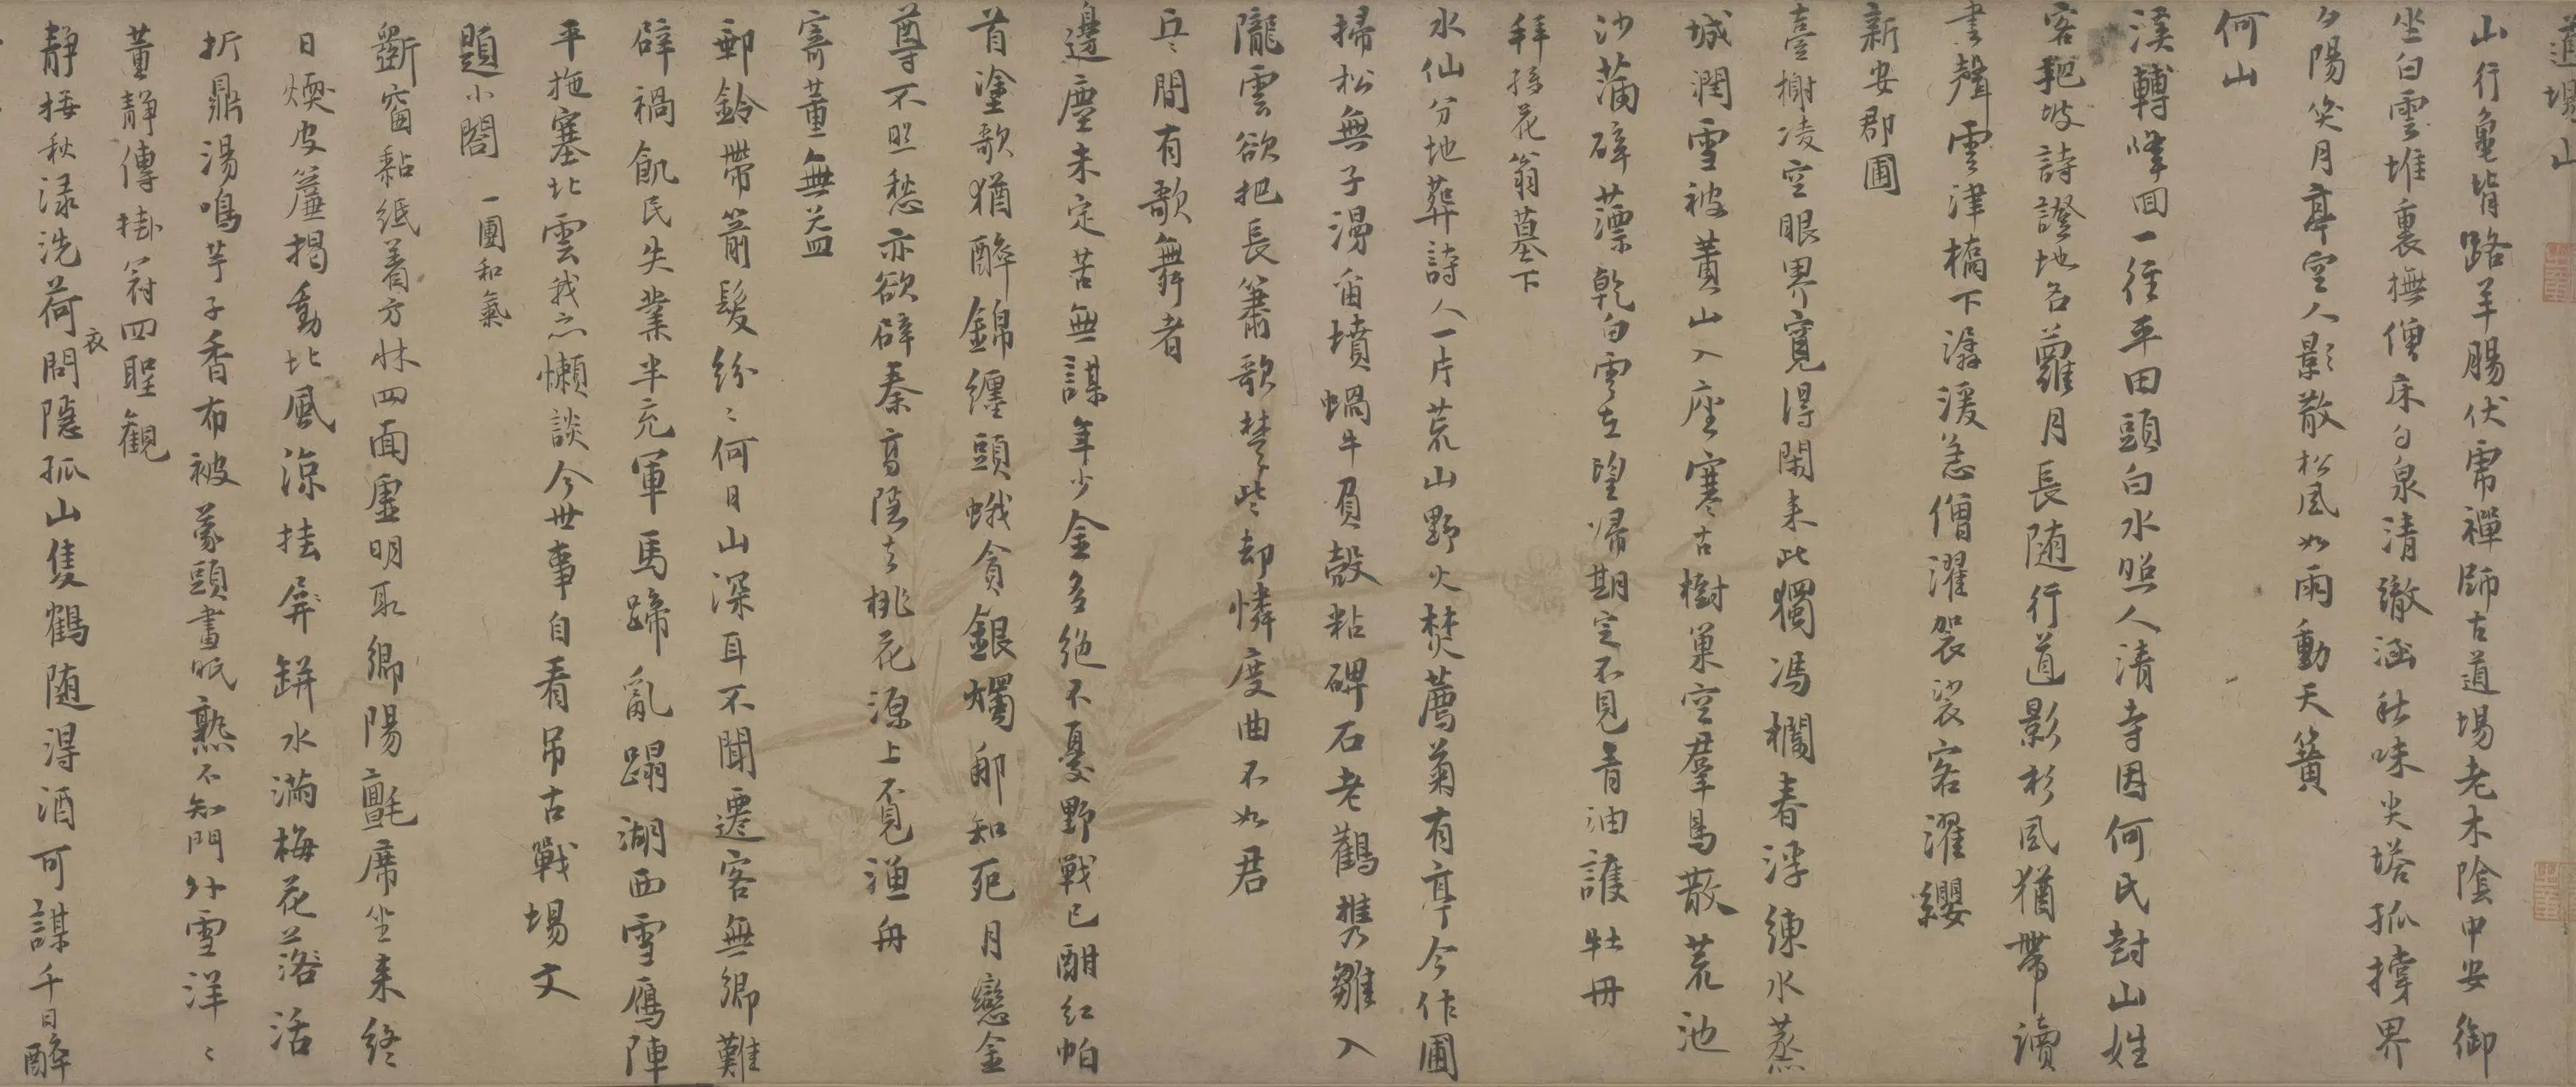 道場山
山行龜背路羊腸伏虎禪師古道場老木陰中安御
坐白雲堆裏撫僧床勺泉清澈涵秋味尖塔孤撐界
夕陽笑月亭空人影散松風如雨動天簧
何山
溪轉峰回一徑平田頭白水照人清寺因何氏封山姓
客把坡詩證地名蘿月長随行道影杉風猶帶讀
書聲雲津橋下潺湲急僧濯袈裟客濯纓
新安郡圃
臺榭凌空眼界寬得閑来此獨馮欄春浮練水蒸
城潤雪被黄山入座寒古樹巢空羣鳥散荒池
沙滿碎蘋乾白雲在望歸期定不見青油護牡丹
拜孫花翁墓下
水仙分地葬詩人一片荒山野火焚薦菊有亭今作圃
掃松無子漫留墳蝸牛負殻粘碑石老鶴携雛入
隴雲欲把長簫歌楚些却憐度曲不如君
兵間有歌舞者
邊塵未定苦無謀年少金多絶不憂野戰已酣紅帕
首塗歌猶醉錦纏頭蛾貪銀燭那知死月戀金
尊不照愁亦欲辟秦高隱去桃花源上覓漁舟
寄董無益
郵鈴帶箭髮紛〻何日山深耳不聞遷客無鄉難
辟禍飢民失業半充軍馬蹄亂蹋湖西雪鴈陣
平拖塞北雲我亦懶談今世事自看吊古戰場文
題小閣 一團和氣
斷窗黏紙着方牀四面虛明取鄉陽氈席坐来終
日煗皮簾揭動北風涼挂屏缾水滿梅花落活
折鼎湯鳴芋子香布被蒙頭晝眠熟不知門外雪洋〻
董靜傳掛冠四聖觀
靜掬秋渌洗荷衣問隱孤山隻鶴随得酒可謀千日醉